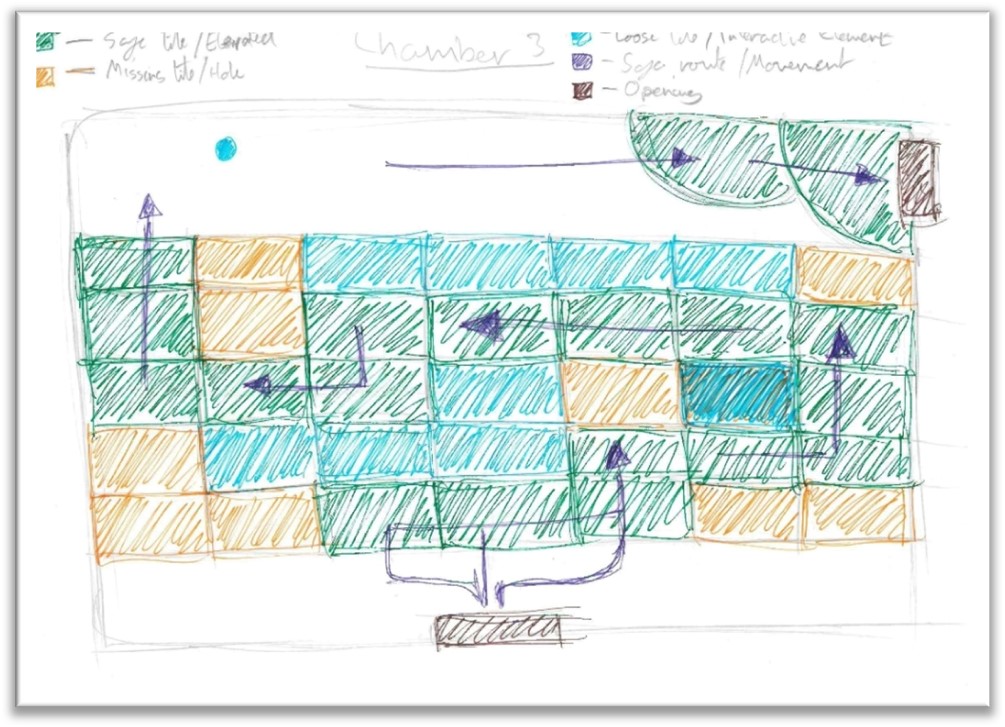 - Safe tile/Elevated
- Missing tile/Hole
Chamber 3
- Loose tile/Interactive Element
- Safe route/Movement
- Opening